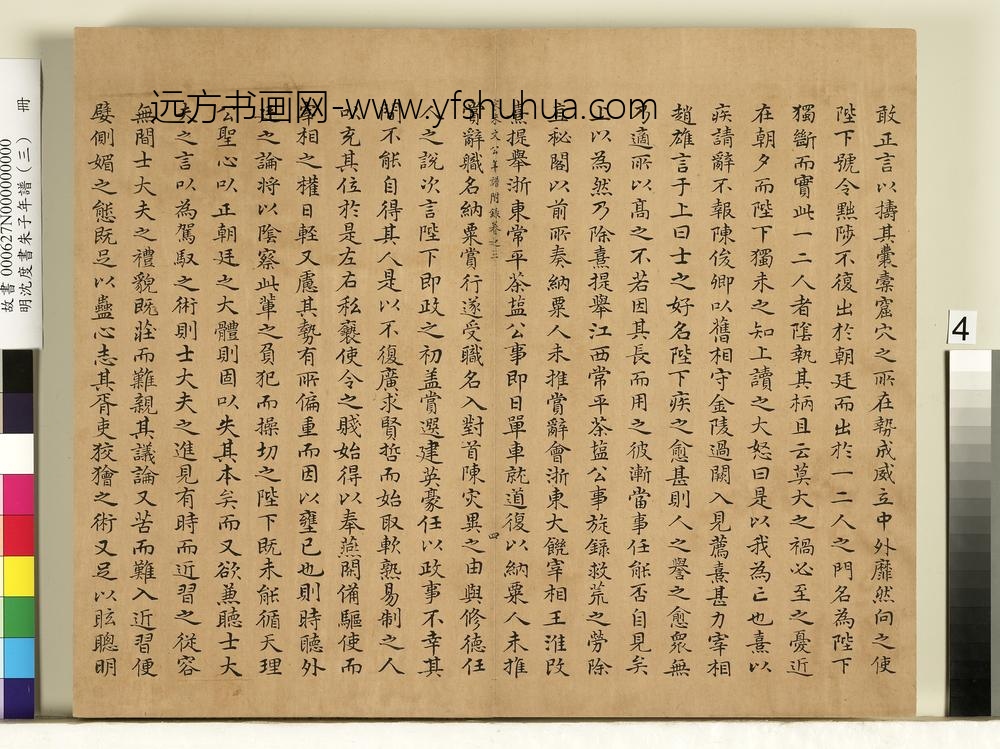 敢正言以擣其囊槖窟穴之所在勢成威立中外靡然向之使
陛下號令黜陟不復出於朝廷而出於一二人之門名為陛下
獨斷而實此一二人者陰執其柄且云莫大之禍必至之憂近
在朝夕而陛下獨未之知上讀之大怒曰是以我為亡也熹以
疾請辭不報陳俊卿以舊相守金陵過闕入見薦熹甚力宰相
趙雄言于上曰士之好名陛下疾之愈甚則人之譽之愈衆無
適所以高之不若因其長而用之彼漸當事任能否自見矣
以為然乃除熹提舉江西常平茶盐公事旋錄救荒之勞除
直秘閣以前所奏納粟人未推賞辭會浙東大饑宰相王淮改
熹提舉浙東常平茶盐公事即日單車就道復以納粟人未推
朱文公年譜附錄卷之三
四
賞辭職名納粟賞行遂受職名入對首陳灾異之由與修德任
人之說次言陛下即政之初盖嘗選建英豪任以政事不幸其
間不能自得其人是以不復廣求賢哲而始取軟熟易制之人
以充其位於是左右私褻使令之賤始得以奉燕閒備驅使而
宰相之權日輕又慮其勢有所偏重而因以壅已也則時聽外
之論將以陰察此輩之負犯而操切之陛下既未能循天理
公聖心以正朝廷之大體則固以失其本矣而又欲兼聽士大
夫之言以為駕馭之術則士大夫之進見有時而近習之從容
無間士大夫之禮貌既莊而難親其議論又苦而難入近習便
嬖側媚之態既足以蠱心志其胥吏狡獪之術又足以眩聰明
远方书画网-www.yfshuhua.com
故書000627N000000000
明沈度書朱子年譜(三) 冊
4